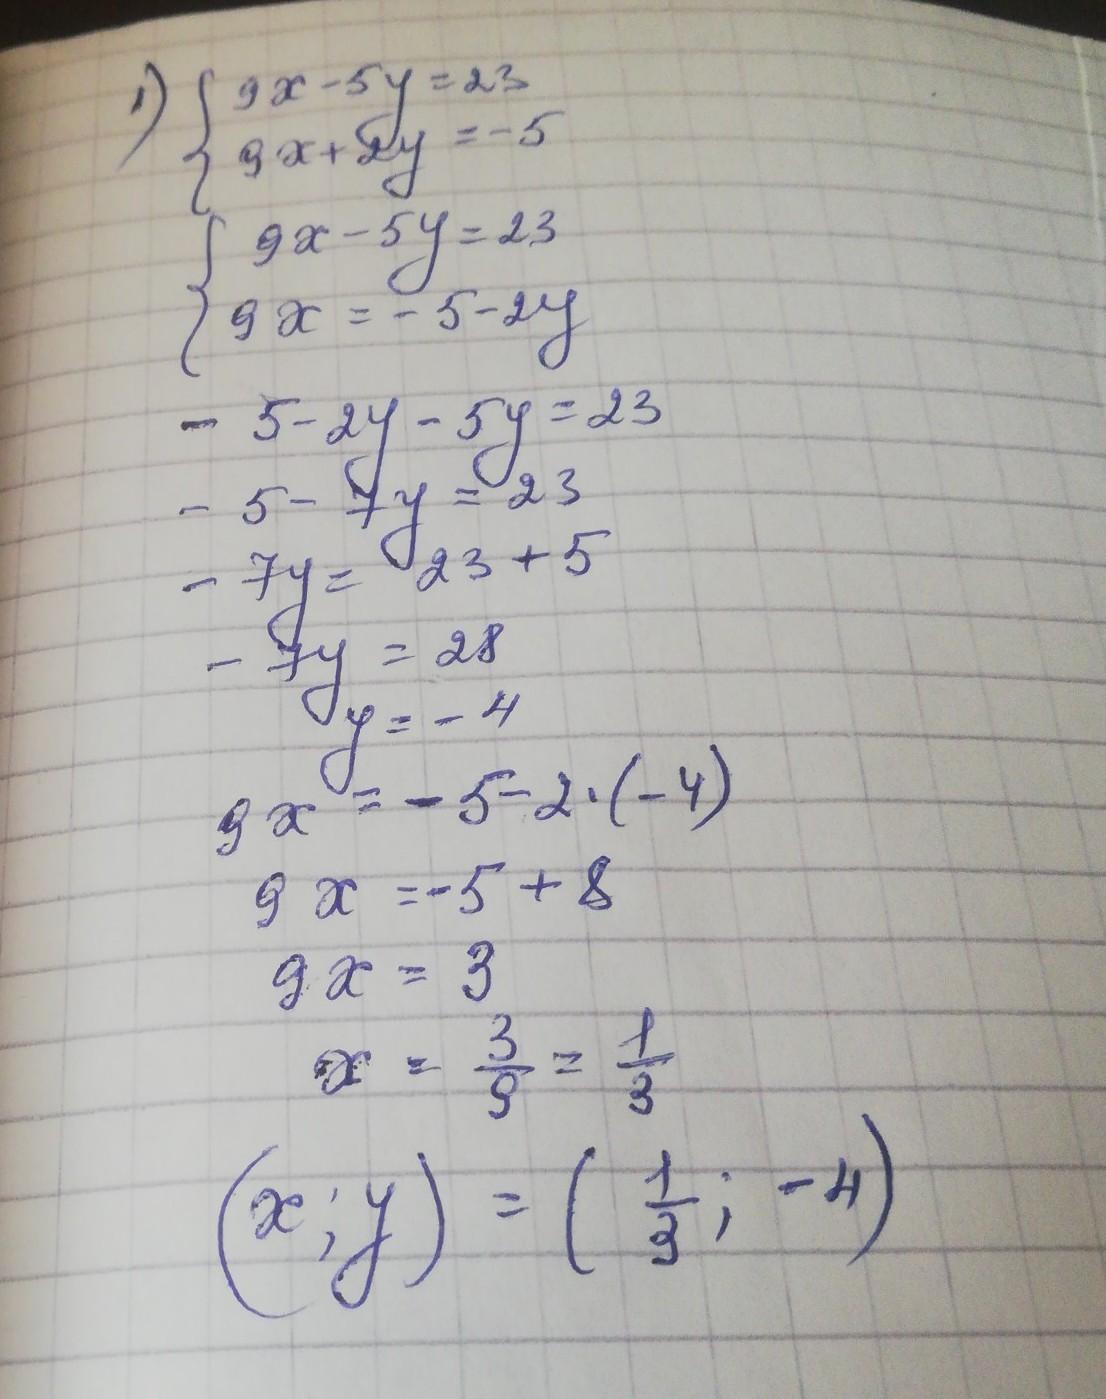 1) { 9x - 5y = 23
9x + 2y = -5
{ 9x - 5y = 23
9x = -5 - 2y
- 5 - 2y - 5y = 23
- 5 - 7y = 23
- 7y = 23 + 5
- 7y = 28
y = - 4
9x = - 5 - 2 · (- 4)
9x = -5 + 8
9x = 3
x = 3/9 = 1/3
(x; y) = (1/3; -4)